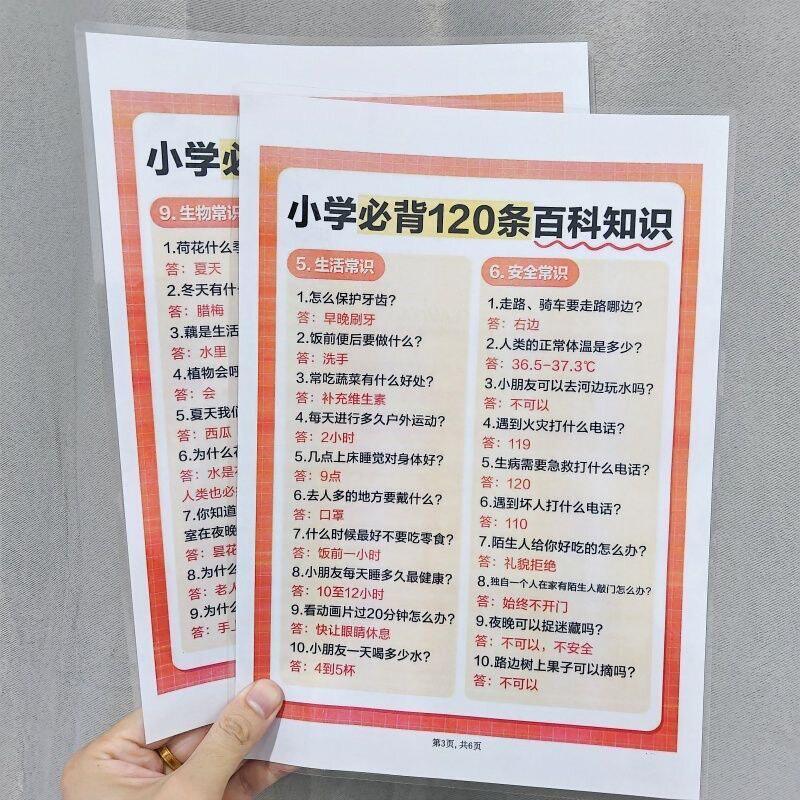 小学必
9. 生物常识
1.荷花什么季
答：夏天
2.冬天有什
答：腊梅
3.藕是生活
答：水里
4.植物会呼
答：会
5.夏天我们
答：西瓜
6.为什么
答：水是
人类也必
7.你知道
室在夜晚
答：昙花
8.为什么
答：老人
9.为什么
答：手上
小学必背120条百科知识
5. 生活常识
1.怎么保护牙齿?
答：早晚刷牙
2.饭前便后要做什么?
答：洗手
3.常吃蔬菜有什么好处?
答：补充维生素
4.每天进行多久户外运动?
答：2小时
5.几点上床睡觉对身体好?
答：9点
6.去人多的地方要戴什么?
答：口罩
7.什么时候最好不要吃零食?
答：饭前一小时
8.小朋友每天睡多久最健康?
答：10至12小时
9.看动画片过20分钟怎么办?
答：快让眼睛休息
10.小朋友一天喝多少水?
答：4到5杯
6. 安全常识
1.走路、骑车要走路哪边?
答：右边
2.人类的正常体温是多少?
答：36.5-37.3℃
3.小朋友可以去河边玩水吗?
答：不可以
4.遇到火灾打什么电话?
答：119
5.生病需要急救打什么电话?
答：120
6.遇到坏人打什么电话?
答：110
7.陌生人给你好吃的怎么办?
答：礼貌拒绝
8.独自一个人在家有陌生人敲门怎么办?
答：始终不开门
9.夜晚可以捉迷藏吗?
答：不可以，不安全
10.路边树上果子可以摘吗?
答：不可以
第3页, 共6页